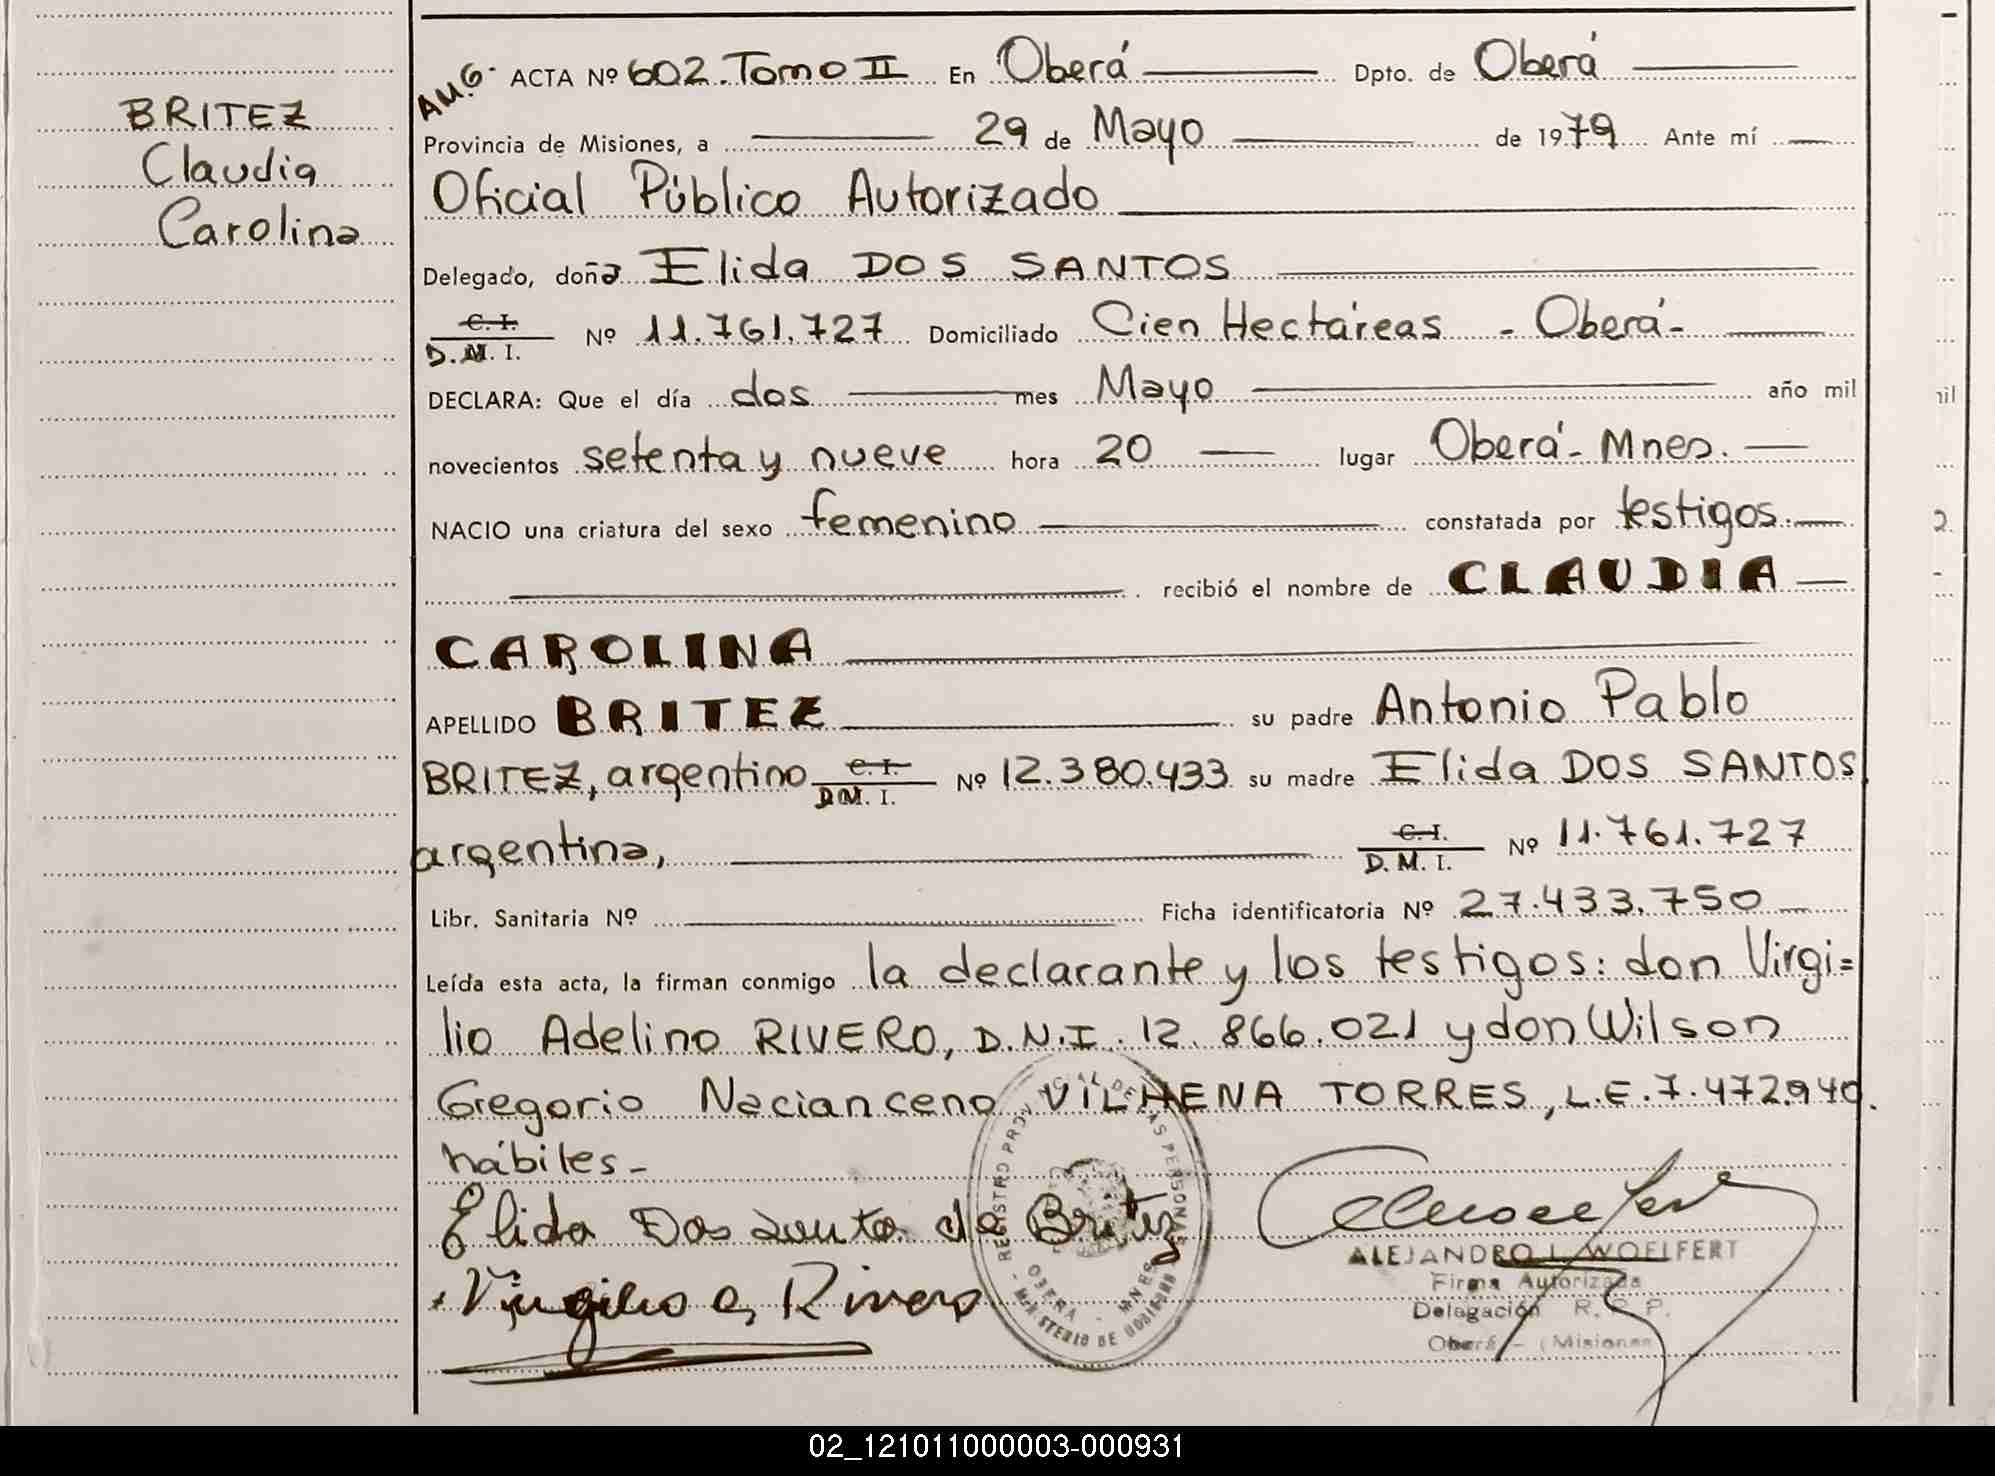 BRITEZ
Claudia
Carolina
AM.G. ACTA Nº 602. Tomo II En Oberá Dpto. de Oberá
Provincia de Misiones, a 29 de Mayo de 1979 Ante mí
Oficial Público Autorizado
Delegado, doña Elida DOS SANTOS
C. I.
D.M. I. Nº 11.761.727 Domiciliado Cien Hectáreas - Oberá-
DECLARA: Que el día dos mes Mayo año mil
novecientos setenta y nueve hora 20 lugar Oberá- Mnes.
NACIO una criatura del sexo femenino constatada por testigos.
recibió el nombre de CLAUDIA
CAROLINA
APELLIDO BRITEZ su padre Antonio Pablo
BRITEZ, argentino C. I. Nº 12.380.433 su madre Elida DOS SANTOS
D M. I.
argentina, C. I. Nº 11.761.727
D. M. I.
Libr. Sanitaria Nº Ficha identificatoria Nº 27.433.750
Leída esta acta, la firman conmigo la declarante y los testigos: don Virgi=
lio Adelino RIVERO, D.N.I. 12.866.021 y don Wilson
Gregorio Nacianceno VILHENA TORRES, L.E. 7.472.940.
hábiles-
Elida Dos Santo de Britez
Virgilio A, Rivero
REGISTRO PROVINCIAL DE LAS PERSONAS
OBERA - MNES
MINISTERIO DE GOBIERNO
ALEJANDRO L. WOELFERT
Firma Autorizada
Delegación R. P. P.
Oberá - (Misiones)
nil
02_121011000003-000931